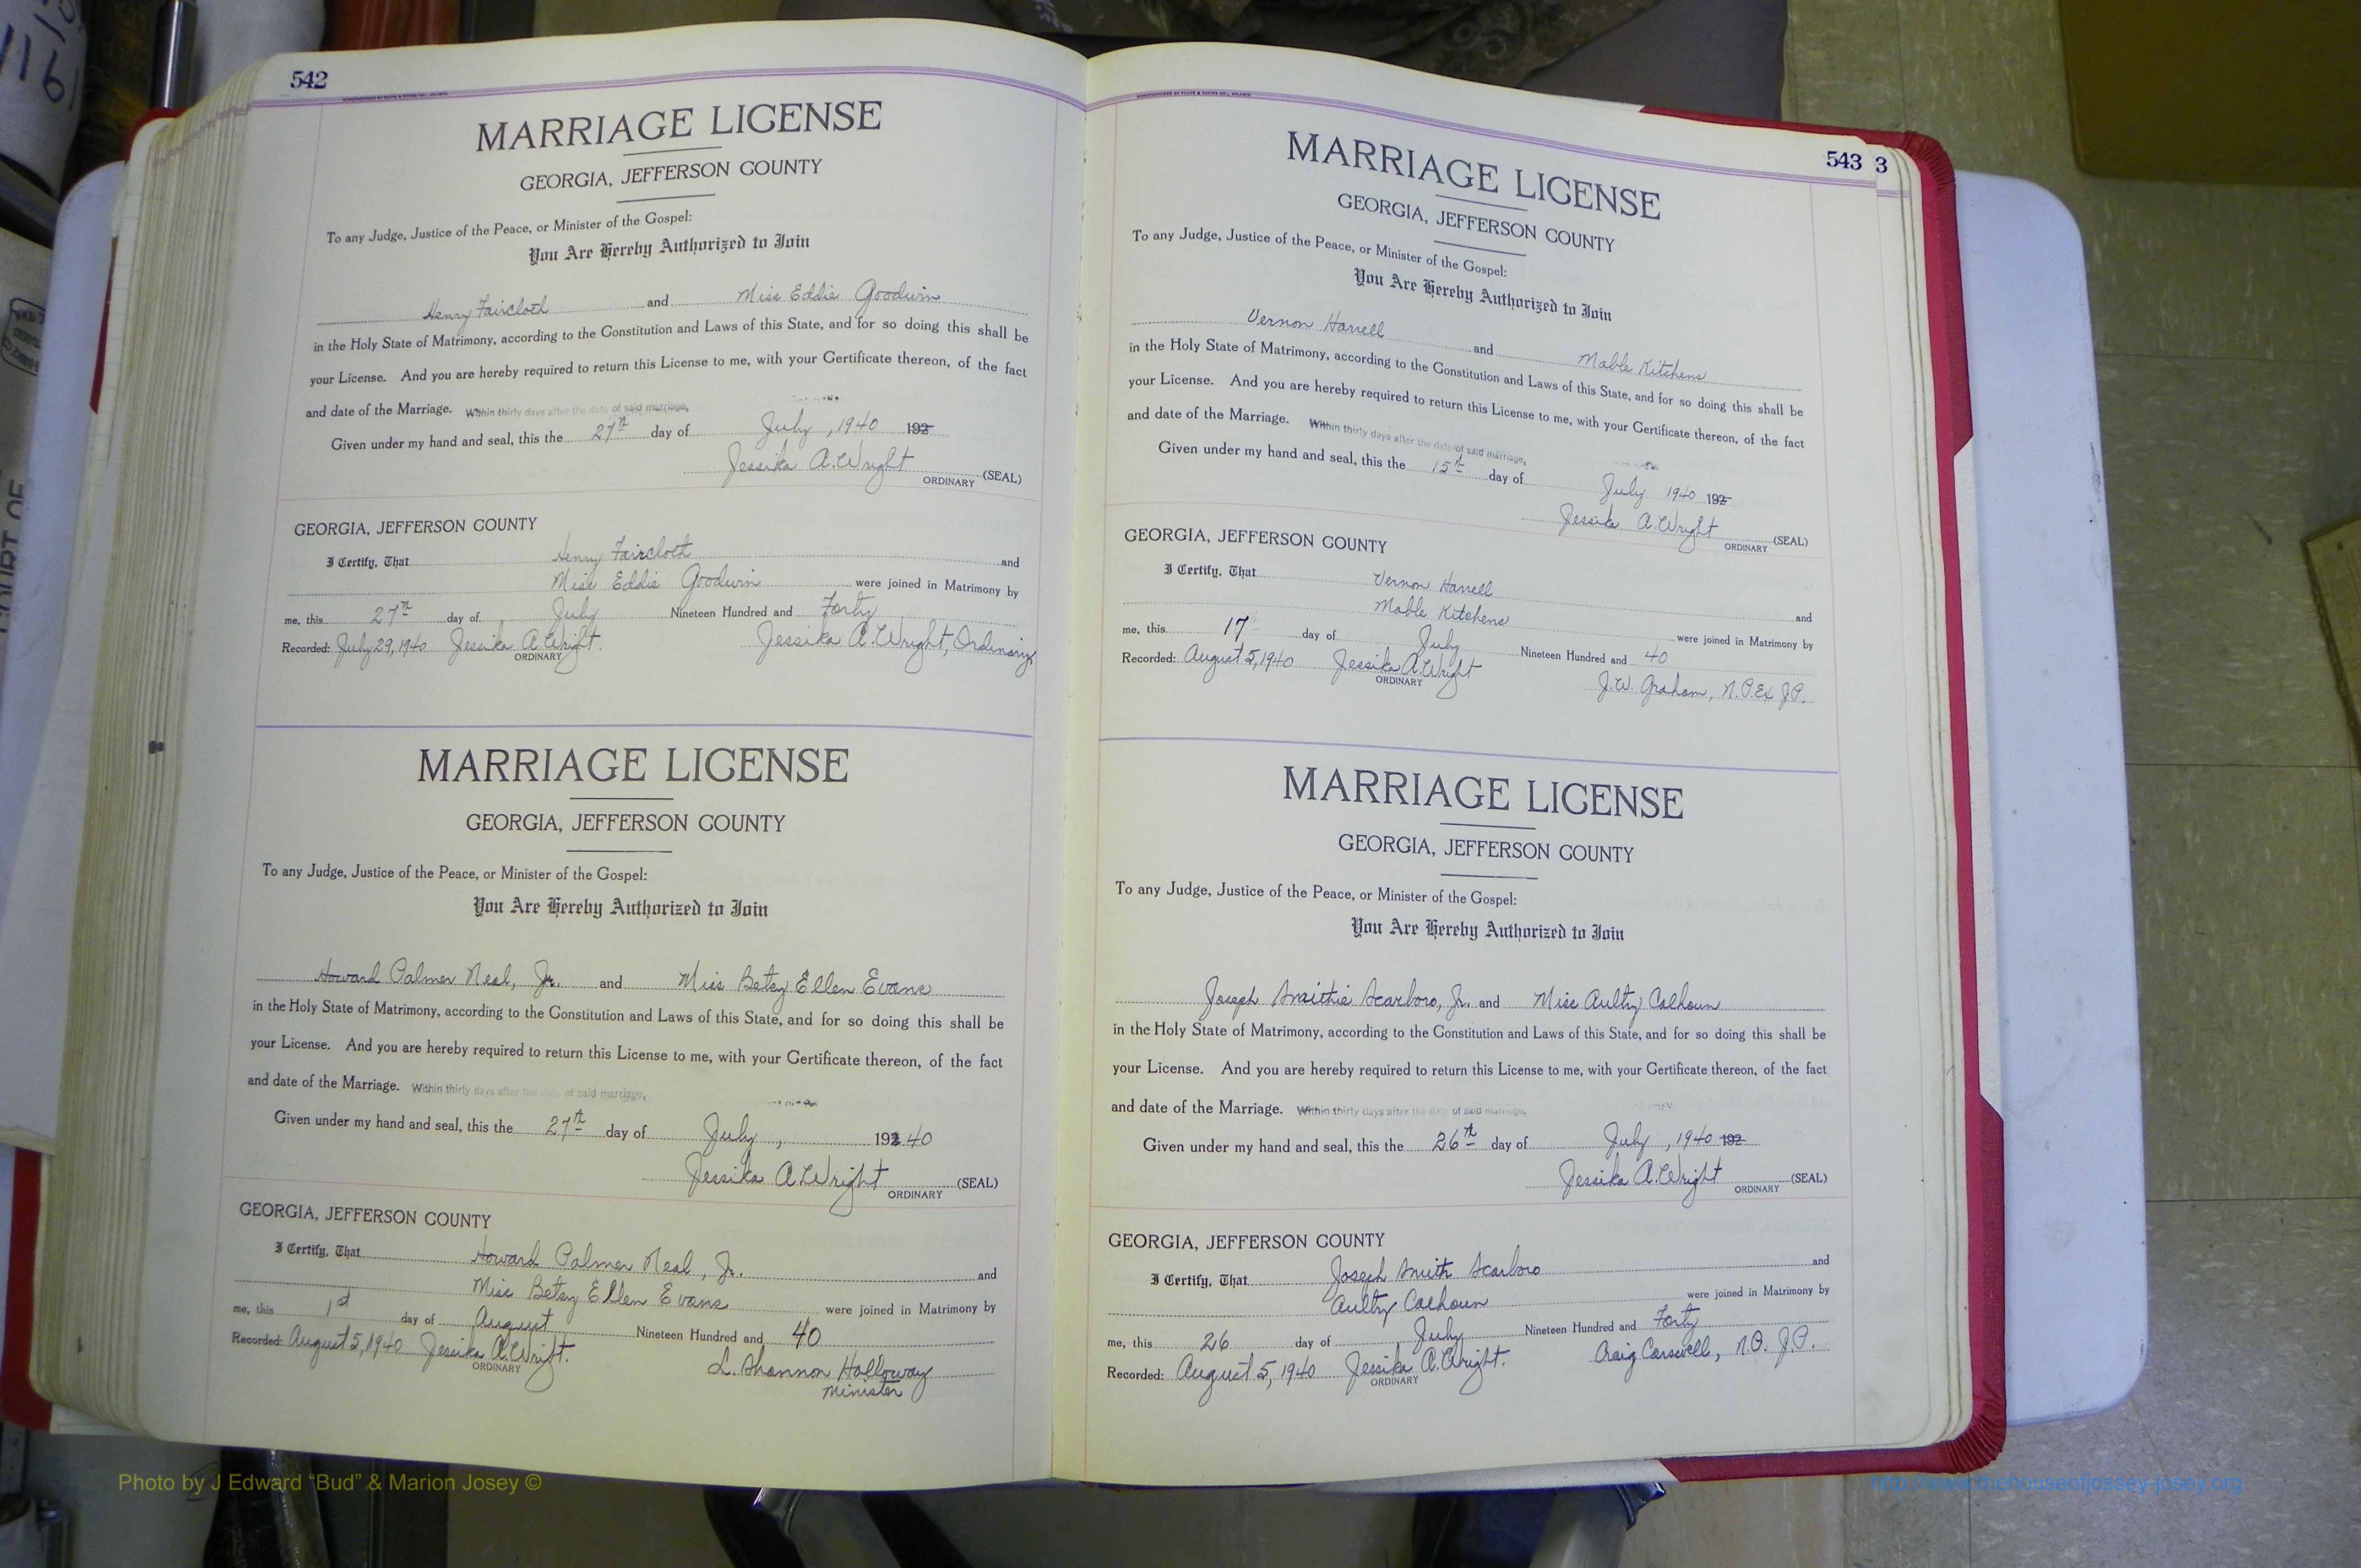 542
MARRIAGE LICENSE
GEORGIA, JEFFERSON COUNTY
To any Judge, Justice of the Peace, or Minister of the Gospel:
You Are Hereby Authorized to Join
Henry Faircloth and Miss Eddie Goodwin
in the Holy State of Matrimony, according to the Constitution and Laws of this State, and for so doing this shall be
your License. And you are hereby required to return this License to me, with your Certificate thereon, of the fact
and date of the Marriage. Within thirty days after the date of said marriage,
Given under my hand and seal, this the 27th day of July, 1940 192
Jessika A. Wright (SEAL)
ORDINARY
GEORGIA, JEFFERSON COUNTY
I Certify, That Henry Faircloth and
Miss Eddie Goodwin were joined in Matrimony by
me, this 27th day of July Nineteen Hundred and Forty
Recorded: July 29, 1940 Jessika A. Wright. Jessika A. Wright, Ordinary
ORDINARY
MARRIAGE LICENSE
GEORGIA, JEFFERSON COUNTY
To any Judge, Justice of the Peace, or Minister of the Gospel:
You Are Hereby Authorized to Join
Howard Palmer Neal, Jr. and Miss Betsy Ellen Evans
in the Holy State of Matrimony, according to the Constitution and Laws of this State, and for so doing this shall be
your License. And you are hereby required to return this License to me, with your Certificate thereon, of the fact
and date of the Marriage. Within thirty days after the date of said marriage,
Given under my hand and seal, this the 27th day of July, 192 40
Jessika A. Wright (SEAL)
ORDINARY
GEORGIA, JEFFERSON COUNTY
I Certify, That Howard Palmer Neal, Jr. and
Miss Betsy Ellen Evans were joined in Matrimony by
me, this 1st day of August Nineteen Hundred and 40
Recorded: August 5, 1940 Jessika A. Wright. L. Shannon Holloway
ORDINARY Minister
543 3
MARRIAGE LICENSE
GEORGIA, JEFFERSON COUNTY
To any Judge, Justice of the Peace, or Minister of the Gospel:
You Are Hereby Authorized to Join
Vernon Harrell and Mable Kitchens
in the Holy State of Matrimony, according to the Constitution and Laws of this State, and for so doing this shall be
your License. And you are hereby required to return this License to me, with your Certificate thereon, of the fact
and date of the Marriage. Within thirty days after the date of said marriage,
Given under my hand and seal, this the 15th day of July 1940 192
Jessika A. Wright (SEAL)
ORDINARY
GEORGIA, JEFFERSON COUNTY
I Certify, That Vernon Harrell and
Mable Kitchens were joined in Matrimony by
me, this 17 day of July Nineteen Hundred and 40
Recorded: August 5, 1940 Jessika A. Wright J.W. Graham, N.P. Ex J.P.
ORDINARY
MARRIAGE LICENSE
GEORGIA, JEFFERSON COUNTY
To any Judge, Justice of the Peace, or Minister of the Gospel:
You Are Hereby Authorized to Join
Joseph Smithie Scarboro, Jr. and Miss Aulty Calhoun
in the Holy State of Matrimony, according to the Constitution and Laws of this State, and for so doing this shall be
your License. And you are hereby required to return this License to me, with your Certificate thereon, of the fact
and date of the Marriage. Within thirty days after the date of said marriage,
Given under my hand and seal, this the 26th day of July, 1940 192
Jessika A. Wright (SEAL)
ORDINARY
GEORGIA, JEFFERSON COUNTY
I Certify, That Joseph Smith Scarboro and
Aulty Calhoun were joined in Matrimony by
me, this 26 day of July Nineteen Hundred and Forty
Recorded: August 5, 1940 Jessika A. Wright. Craig Carswell, N.P. J.P.
ORDINARY
Photo by J Edward “Bud” & Marion Josey ©
http://www.thehouseofjossey-josey.org